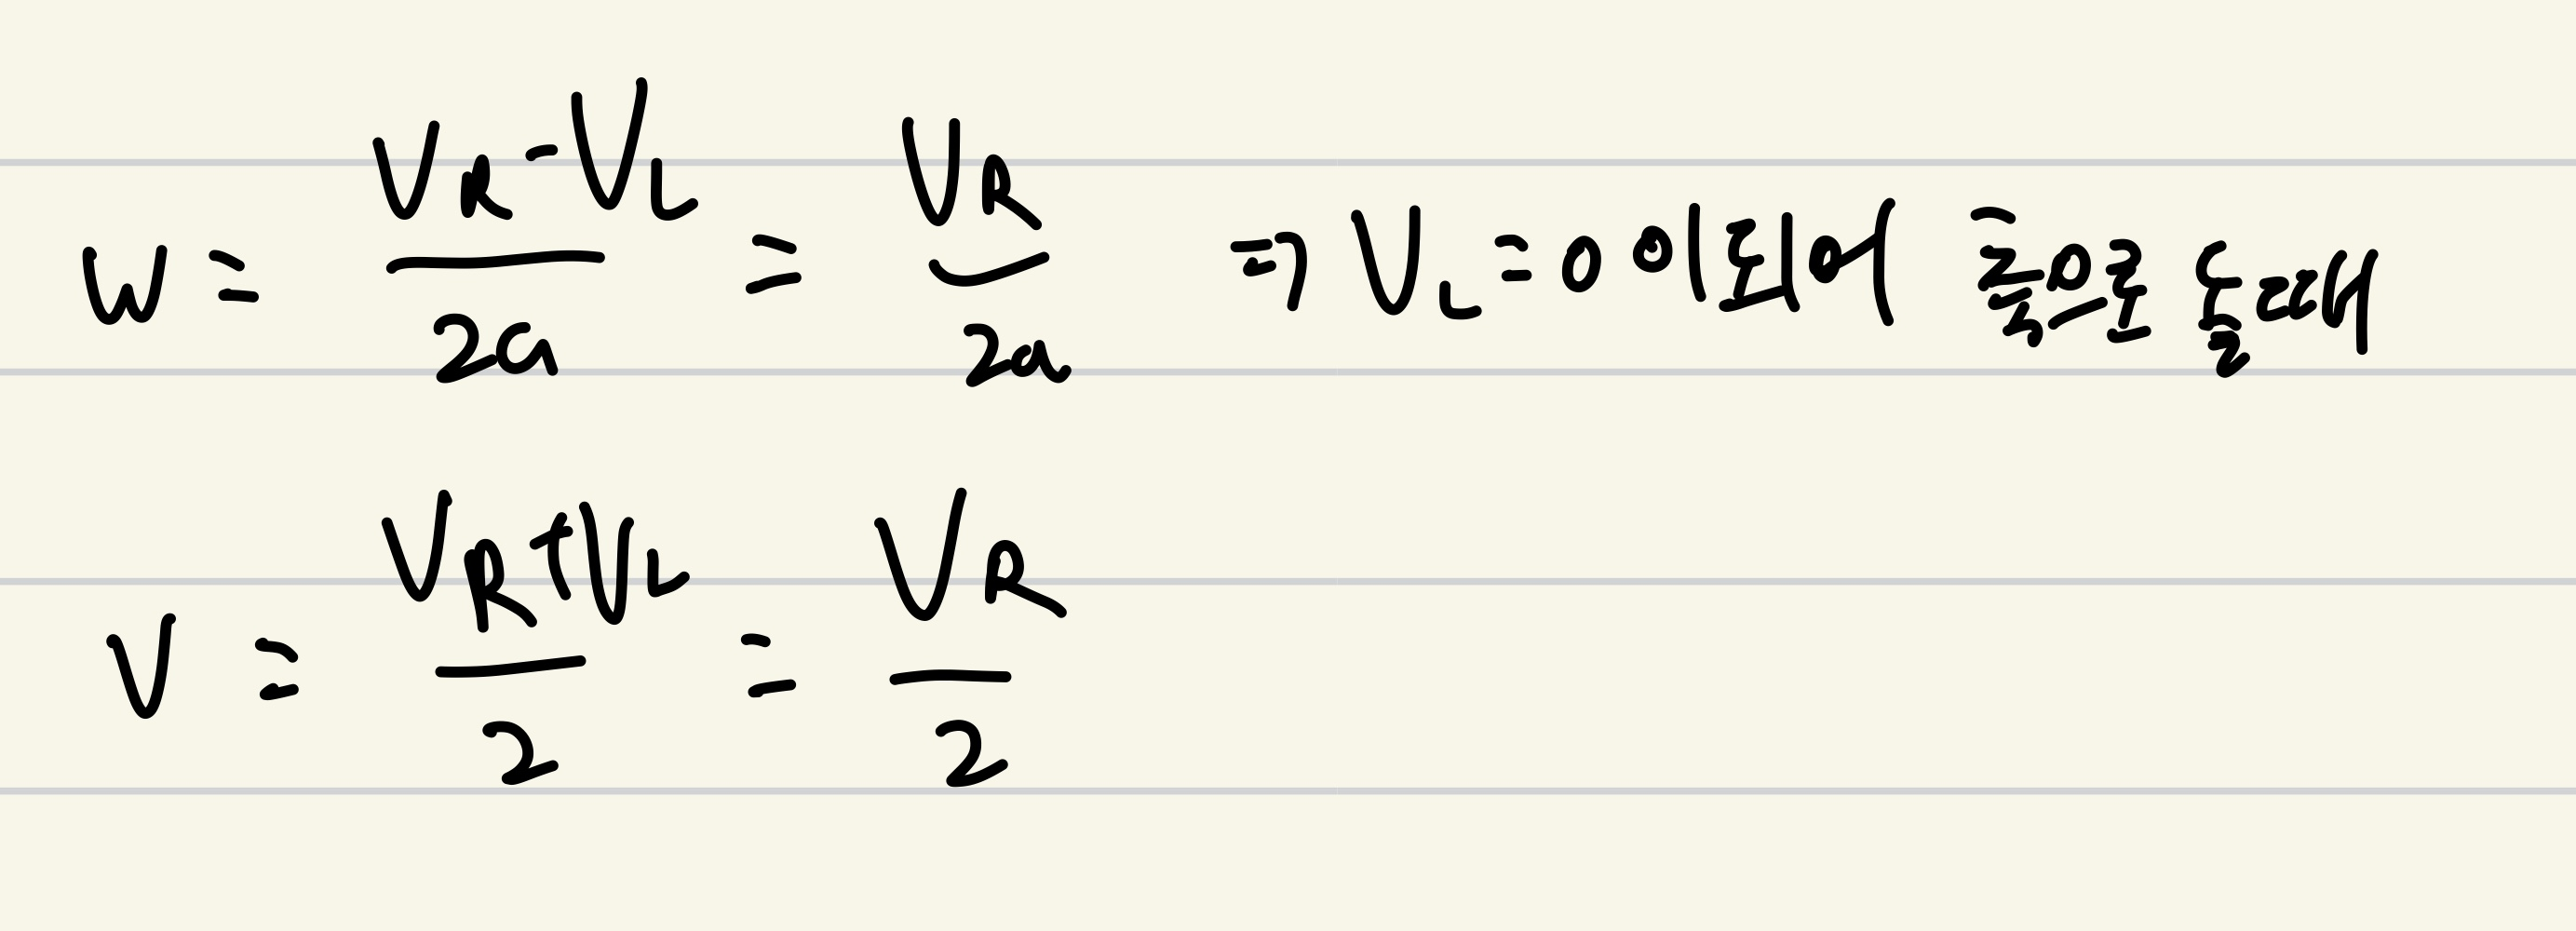 W = (V_R - V_L) / 2a = V_R / 2a ⇒ V_L = 0 이 되어 축으로 돌 때
V = (V_R + V_L) / 2 = V_R / 2